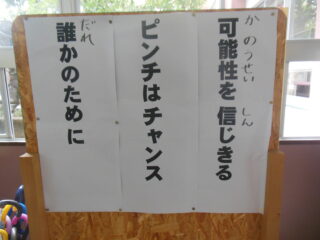 可能性を信じきる
かのうせい しん
ピンチはチャンス
誰かのために
だれ